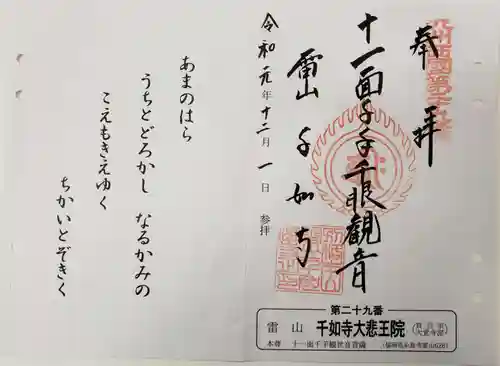 奉拝
十一面千手千眼観音
雷山千如寺
令和元年十二月一日 参拝
あまのはら
うちとどろかし なるかみの
こえもきえゆく
ちかいとぞきく
第二十九番
雷山 千如寺大悲王院
本尊 十一面千手観世音菩薩